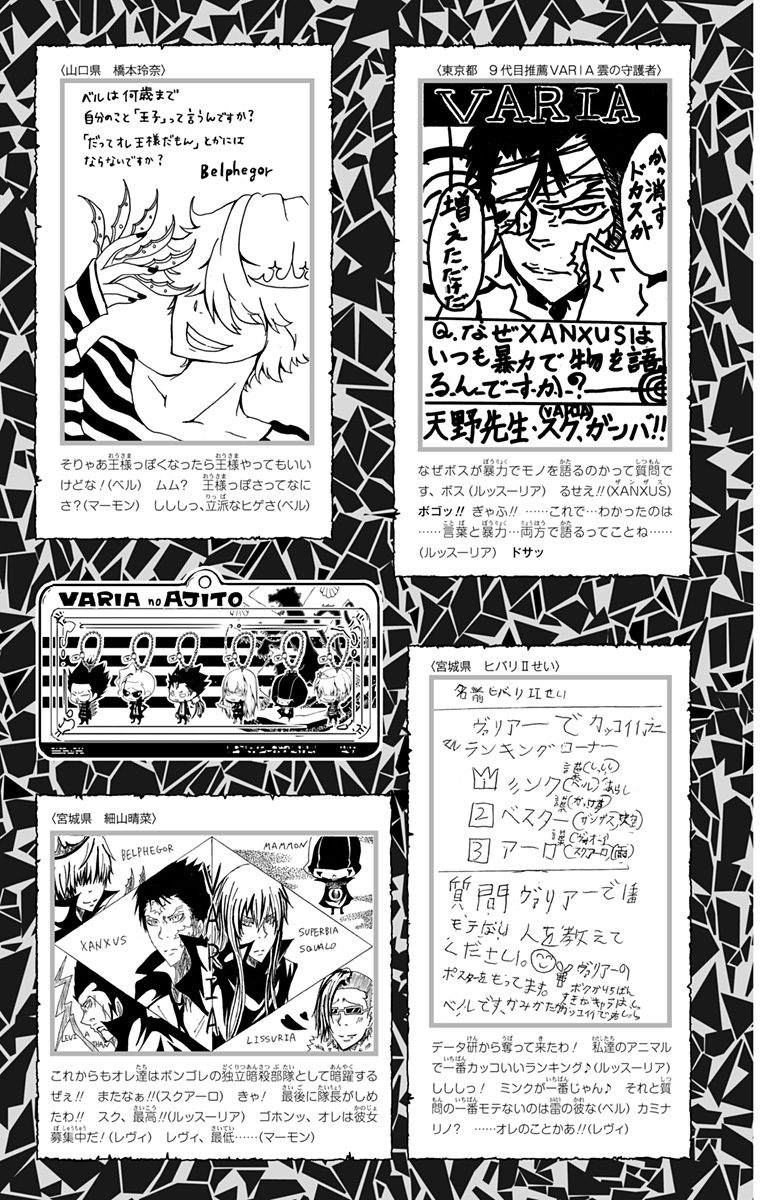 〈山口県　橋本玲奈〉
ベルは何歳まで
自分のこと「王子」って言うんですか?
「だってオレ王様だもん」とかには
ならないですか?
Belphegor
そりゃあ王様っぽくなったら王様やってもいい
けどな!(ベル)　ムム?　王様っぽさってなに
さ?(マーモン)　しししっ、立派なヒゲさ(ベル)
〈東京都　9代目推薦VARIA雲の守護者〉
VARIA
かっ消す
ドカスが
増えただけだ
Q.なぜXANXUSは
いつも暴力で物を語
るんですか?
天野先生・スク、ガンバ!!
(VARIA)
なぜボスが暴力でモノを語るのかって質問で
す、ボス(ルッスーリア)　るせえ!!(XANXUS)
ボゴッ!!　ぎゃふ!!　……これで…わかったのは
……言葉と暴力…両方で語るってことね……
(ルッスーリア)　ドサッ
VARIA no AJITO
〈宮城県　細山晴菜〉
BELPHEGOR
MAMMON
XANXUS
SUPERBIA
SQUALO
VARIA
LISSURIA
これからもオレ達はボンゴレの独立暗殺部隊として暗躍する
ぜぇ!!　またなぁ!!(スクアーロ)　きゃ!　最後に隊長がしめ
たわ!!　スク、最高!!(ルッスーリア)　ゴホンッ、オレは彼女
募集中だ!(レヴィ)　レヴィ、最低……(マーモン)
〈宮城県　ヒバリⅡせい〉
名前ヒバリⅡせい
ヴァリアーでカッコイイ
ランキングコーナー
1 ミンク(ベル)
2 ベスター(ザンザス)
3 アーロ(スクアーロ)(雨)
質問ヴァリアーで1番
モテない人を教えて
ください。
ヴァリアーの
ポスターをもってます。
データ研から奪って来たわ!　私達のアニマル
で一番カッコいいランキング♪(ルッスーリア)
ししし!　ミンクが一番じゃん♪　それと質
問の一番モテないのは雷の彼な(ベル)　カミナ
リノ?　……オレのことかあ!!(レヴィ)